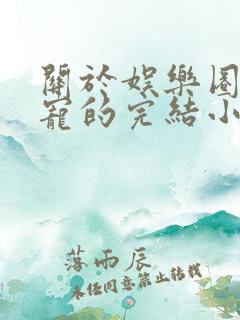 關於娛樂圈
寵的完結小
落雨辰
未经同意禁止转载